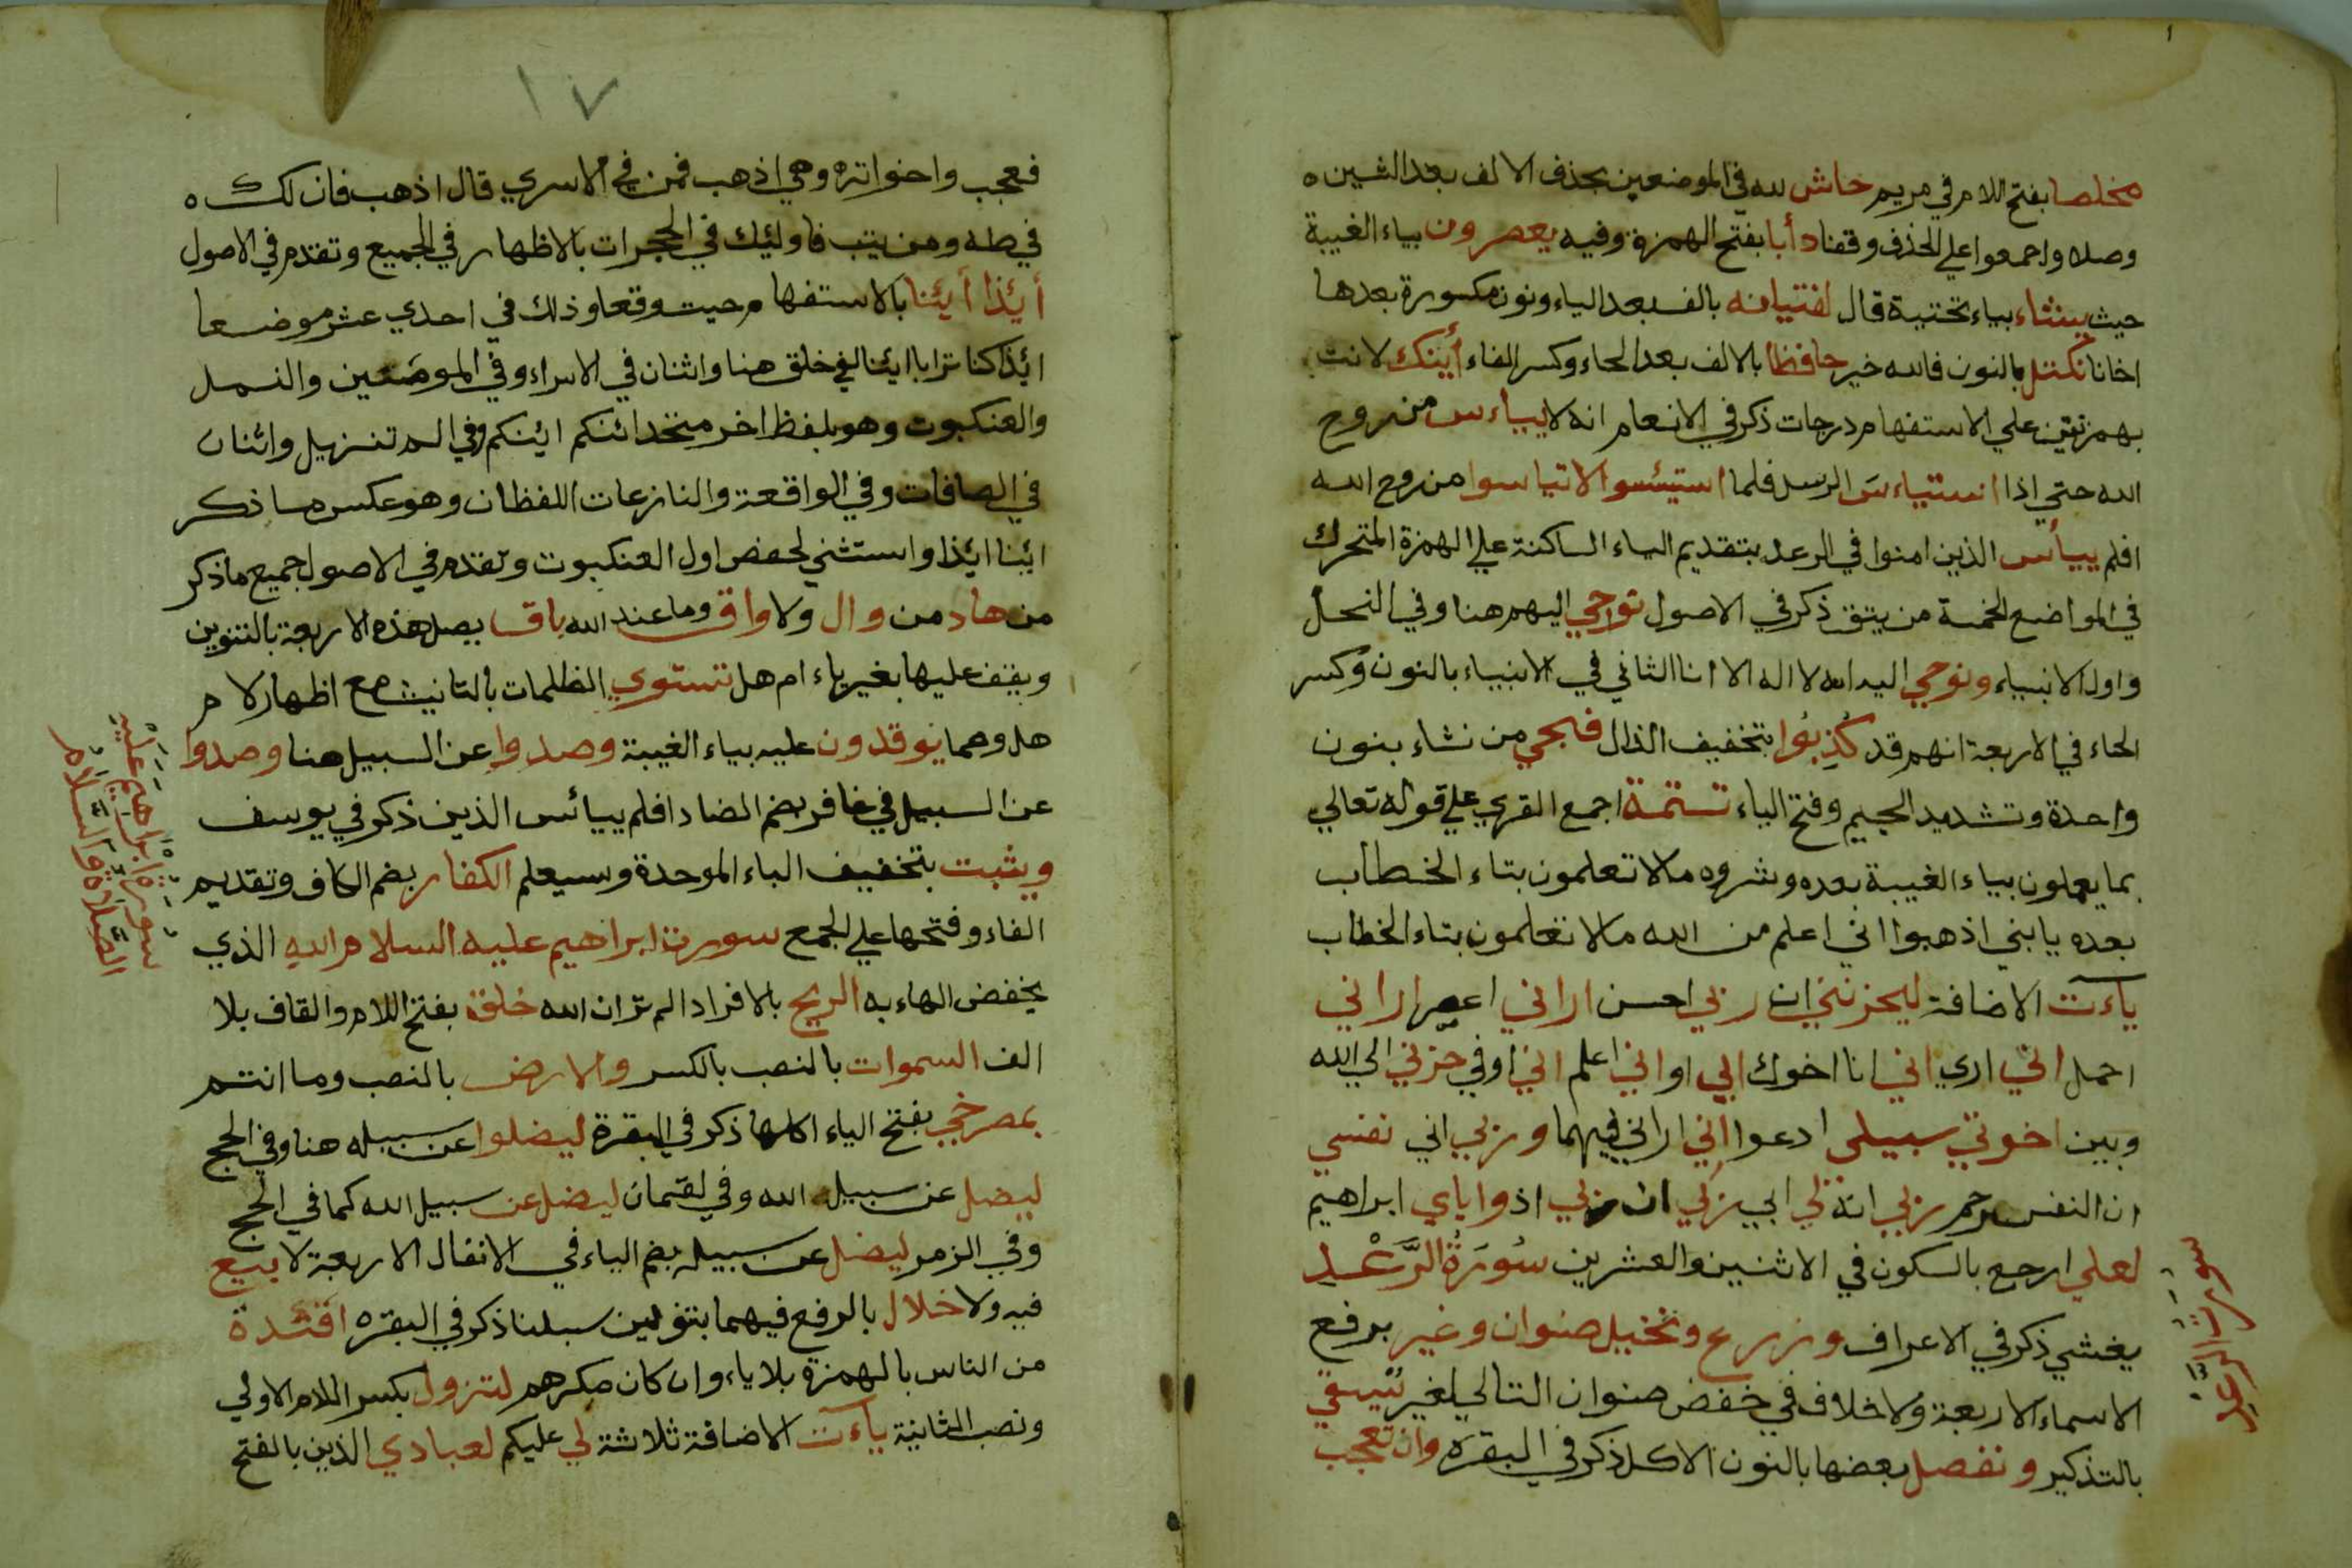 مخلصا بفتح اللام في مريم حاش لله في الموضعين بحذف الالف بعد الشين ه
وصلا واجمعوا علي الحذف وقفا دأبا بفتح الهمزة وفيه يعصرون بياء الغيبة
حيث يشاء بياء تحتية قال لفتيانه بالف بعد الياء ونون مكسورة بعدها
اخانا نكتل بالنون فالله خير حافظا بالالف بعد الحاء وكسر الفاء أينك لانت
بهمزتين علي الاستفهام درجات ذكر في الانعام انه لا يياءس من روح
الله حتي اذا استياءس الرسل فلما استيئسوا لا تياسوا من روح الله
افلم ييأس الذين امنوا في الرعد بتقديم الياء الساكنة علي الهمزة المتحرك
في المواضع الخمسة من يتق ذكر في الاصول نوحي اليهم هنا وفي النحل
واول الانبياء ونوحي اليه انه لا اله الا انا الثاني في الانبياء بالنون وكسر
الحاء في الاربعة انهم قد كُذِبُوا بتخفيف الذال فنجي من نشاء بنون
واحدة وتشديد الجيم وفتح الياء تستمة اجمع القري علي قوله تعالي
بما يعملون بياء الغيبة بعده وشروه ما لا تعلمون بتاء الخطاب
بعده يا بني اذهبوا اني اعلم من الله ما لا تعلمون بتاء الخطاب
ياءت الاضافة ليحزنني ان ربي احسن اراني اعصر اراني
احمل اني اري اني انا اخوك ابي او اني اعلم اني اوفي حزني الي الله
وبين اخوتي سبيلي ادعوا اني اراني فيهما وربي اني نفسي
ان النفس رحم ربي انه لي ابي ربي ان ربي اذ واباي ابراهيم
لعلي ارجع بالسكون في الاثنين والعشرين سُورَةُ الرَّعْد
يغشي ذكر في الاعراف وزرع ونخيل صنوان وغير برفع
الاسماء الاربعة ولا خلاف في خفض صنوان التالي لغير يسقي
بالتذكير ونفصل بعضها بالنون الاكل ذكر في البقره وان تعجب
سورة الرعد
١٧
فعجب واخواته وهي اذهب فمن في الاسري قال اذهب فان لك ه
في طه ومن يتب فاولئك في الحجرات بالاظهار في الجميع وتقدم في الاصول
أيئذا أيئنا بالاستفهام حيث وقعا وذلك في احدي عشر موضعا
ائذا كنا ترابا ائنا لفي خلق هنا واثنان في الاسراء وفي الموضعين والنمل
والعنكبوت وهو بلفظ اخر متحد ائنكم ائنكم وفي الم تنزيل واثنان
في الصافات وفي الواقعة والنازعات اللفظان وهو عكس ما ذكر
ائنا ائذا واستثني لحفص اول العنكبوت وتقدم في الاصول جميع ما ذكر
من هاد من وال ولا واق وما عند الله باق يصل هذه الاربعة بالتنوين
ويقف عليها بغير ياء ام هل تستوي الظلمات بالتانيث مع اظهار لام
هل ومما يوقدون عليه بياء الغيبة وصدوا عن السبيل هنا وصدوا
عن السبيل في غافر بضم الصاد افلم ييائس الذين ذكر في يوسف
ويثبت بتخفيف الباء الموحدة وسيعلم الكفار بضم الكاف وتقديم
الفاء وفتحها علي الجمع سورة ابراهيم عليه السلام الله الذي
بخفض الهاء به الريح بالافراد الم تر ان الله خلق بفتح اللام والقاف بلا
الف السموات بالنصب بالكسر والارض بالنصب وما انتم
بمصرخي بفتح الياء اكلها ذكر في البقرة ليضلوا عن سبيله هنا وفي الحج
ليضل عن سبيل الله وفي لقمان ليضل عن سبيل الله كما في الحج
وفي الزمر ليضل عن سبيله بضم الياء في الانفال الاربعة لا بيع
فيه ولا خلال بالرفع فيهما بتنوين سبلنا ذكر في البقره افئدة
من الناس بالهمزة بلا ياء وان كان مكرهم لتزول بكسر اللام الاولي
ونصب الثانية ياءت الاضافة ثلاثة لي عليكم لعبادي الذين بالفتح
سورة ابراهيم عليه
الصلاة والسلام